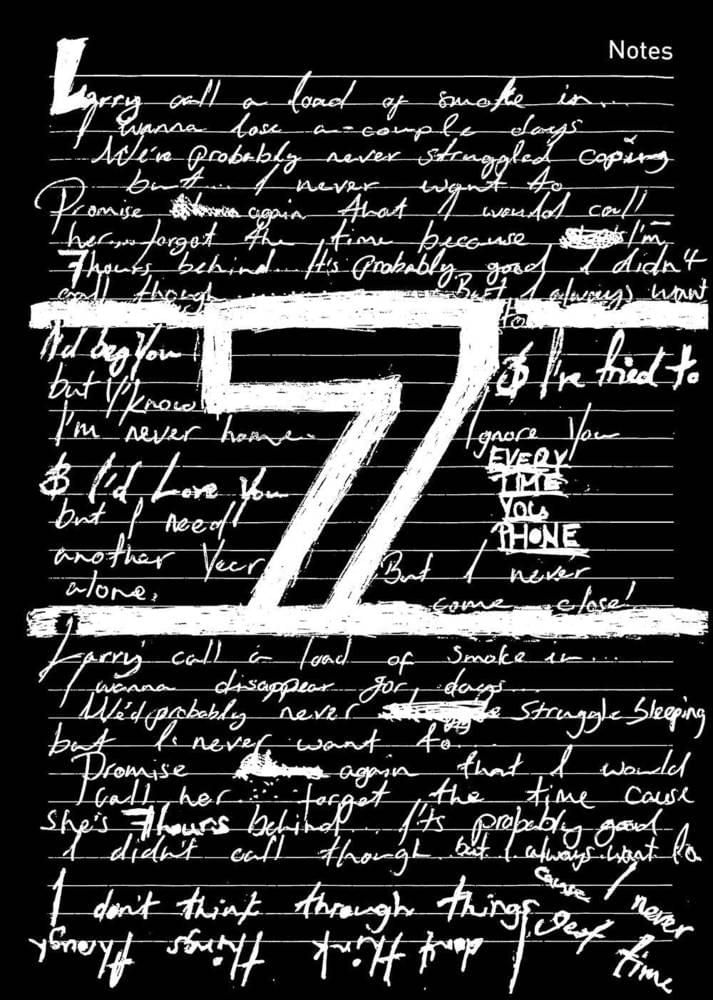 Notes
Larry call a load of smoke in...
I wanna lose a-couple days
We're probably never struggled coping
but... I never want to
Promise again that I would call
her... forgot the time because I'm
7hours behind.. It's probably good I didn't
call though.......... But I always want
to
I'd beg You
but Y'know
I'm never home.
& I'd Love You
but I need
another Year
alone.
7
& I've tried to
Ignore You
EVERY
TIME
YOU
PHONE
But I never
come close!
Larry call a load of smoke in...
I wanna disappear for days...
We'd probably never Struggle Sleeping
but I never want to..
Promise again that I would
call her... forget the time cause
she's 7hours behind.. It's probably good
I didn't call though but I always want to
I don't think through things,
cause I never
get time
don't think things through